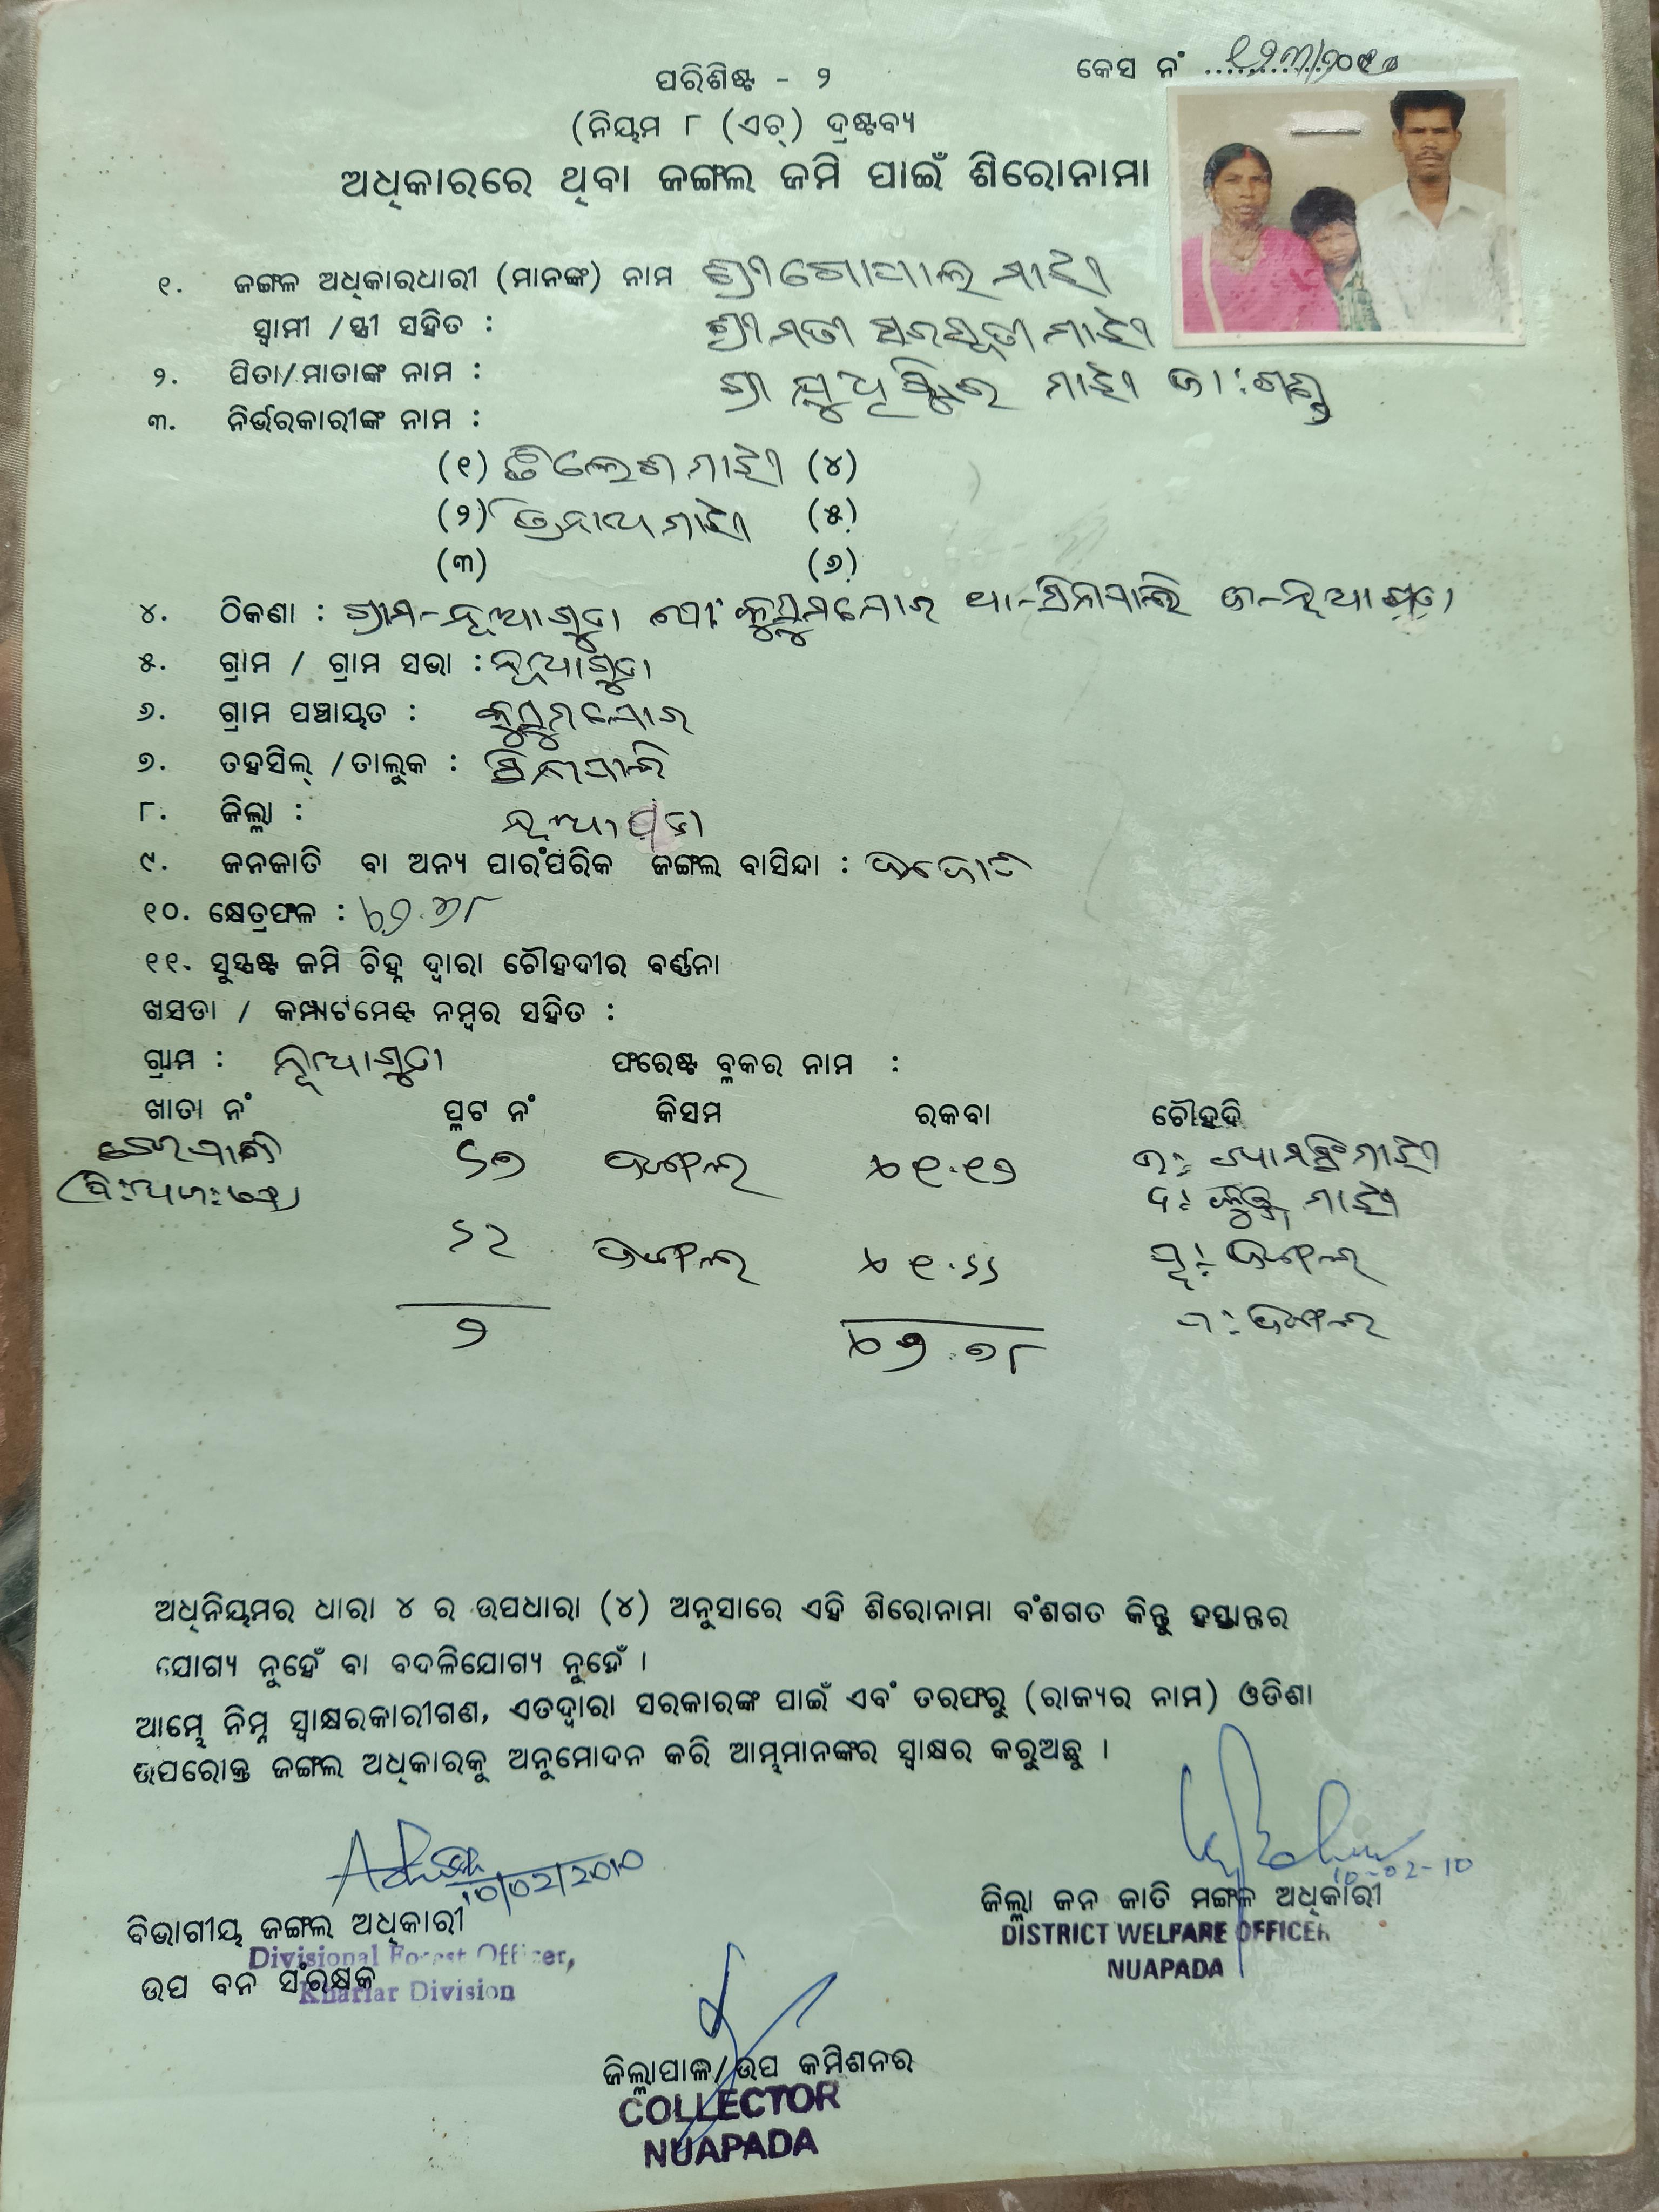 ପରିଶିଷ୍ଟ - ୨
କେସ ନଂ
(ନିୟମ ୮ (ଏଚ୍) ଦ୍ରଷ୍ଟବ୍ୟ
ଅଧିକାରରେ ଥିବା ଜଙ୍ଗଲ ଜମି ପାଇଁ ଶିରୋନାମା
୧. ଜଙ୍ଗଳ ଅଧିକାରଧାରୀ (ମାନଙ୍କ) ନାମ ଶ୍ରୀ ଗୋପାଲ ମାଝୀ
ସ୍ୱାମୀ /ସ୍ତ୍ରୀ ସହିତ : ଶ୍ରୀମତୀ ସରସ୍ୱତୀ ମାଝୀ
୨. ପିତା/ମାତାଙ୍କ ନାମ : ଶ୍ରୀ ଯୁଧିଷ୍ଠିର ମାଝୀ ଜା:ଗଣ୍ଡ
୩. ନିର୍ଭରକାରୀଙ୍କ ନାମ :
(୧) ମାଝୀ (୪)
(୨) ତ୍ରିନାଥ ମାଝୀ (୫)
(୩) (୬)
୪. ଠିକଣା : ଗ୍ରାମ-ନୂଆଗୁଡା ପୋ: କୁସୁମଯୋର ଥା-ସିନାପାଲି ଜି-ନୂଆପଡା
୫. ଗ୍ରାମ / ଗ୍ରାମ ସଭା : ନୂଆଗୁଡା
୬. ଗ୍ରାମ ପଞ୍ଚାୟତ : କୁସୁମଯୋର
୭. ତହସିଲ୍ /ତାଲୁକ : ସିନାପାଲି
୮. ଜିଲ୍ଲା : ନୂଆପଡା
୯. ଜନଜାତି ବା ଅନ୍ୟ ପାରଂପରିକ ଜଙ୍ଗଲ ବାସିନ୍ଦା : ଜନଜାତି
୧୦. କ୍ଷେତ୍ରଫଳ :
୧୧. ସୁସ୍ପଷ୍ଟ ଜମି ଚିହ୍ନ ଦ୍ୱାରା ଚୌହଦୀର ବର୍ଣ୍ଣନା
ଖସଡା / କମ୍ପାର୍ଟମେଣ୍ଟ ନମ୍ବର ସହିତ :
ଗ୍ରାମ : ନୂଆଗୁଡା ଫରେଷ୍ଟ ବ୍ଲକର ନାମ :
ଖାତା ନଂ ପ୍ଳଟ ନଂ କିସମ ରକବା ଚୌହଦି
ଜଙ୍ଗଲ ମାଝୀ
ଦ: ମାଝୀ
ଜଙ୍ଗଲ ପୂ: ଜଙ୍ଗଲ
ପ: ଜଙ୍ଗଲ
୨
ଅଧିନିୟମର ଧାରା ୪ ର ଉପଧାରା (୪) ଅନୁସାରେ ଏହି ଶିରୋନାମା ବଂଶଗତ କିନ୍ତୁ ହସ୍ତାନ୍ତର
ଯୋଗ୍ୟ ନୁହେଁ ବା ବଦଳିଯୋଗ୍ୟ ନୁହେଁ ।
ଆମ୍ଭେ ନିମ୍ନ ସ୍ୱାକ୍ଷରକାରୀଗଣ, ଏତଦ୍ୱାରା ସରକାରଙ୍କ ପାଇଁ ଏବଂ ତରଫରୁ (ରାଜ୍ୟର ନାମ) ଓଡିଶା
ଉପରୋକ୍ତ ଜଙ୍ଗଲ ଅଧିକାରକୁ ଅନୁମୋଦନ କରି ଆମ୍ଭମାନଙ୍କର ସ୍ୱାକ୍ଷର କରୁଅଛୁ ।
10/02/2010
10-02-10
ବିଭାଗୀୟ ଜଙ୍ଗଲ ଅଧିକାରୀ
Divisional Forest Officer,
ଉପ ବନ ସଂରକ୍ଷକ
Khariar Division
ଜିଲ୍ଲା ଜନ ଜାତି ମଙ୍ଗଳ ଅଧିକାରୀ
DISTRICT WELFARE OFFICER
NUAPADA
ଜିଲ୍ଲାପାଳ/ଉପ କମିଶନର
COLLECTOR
NUAPADA